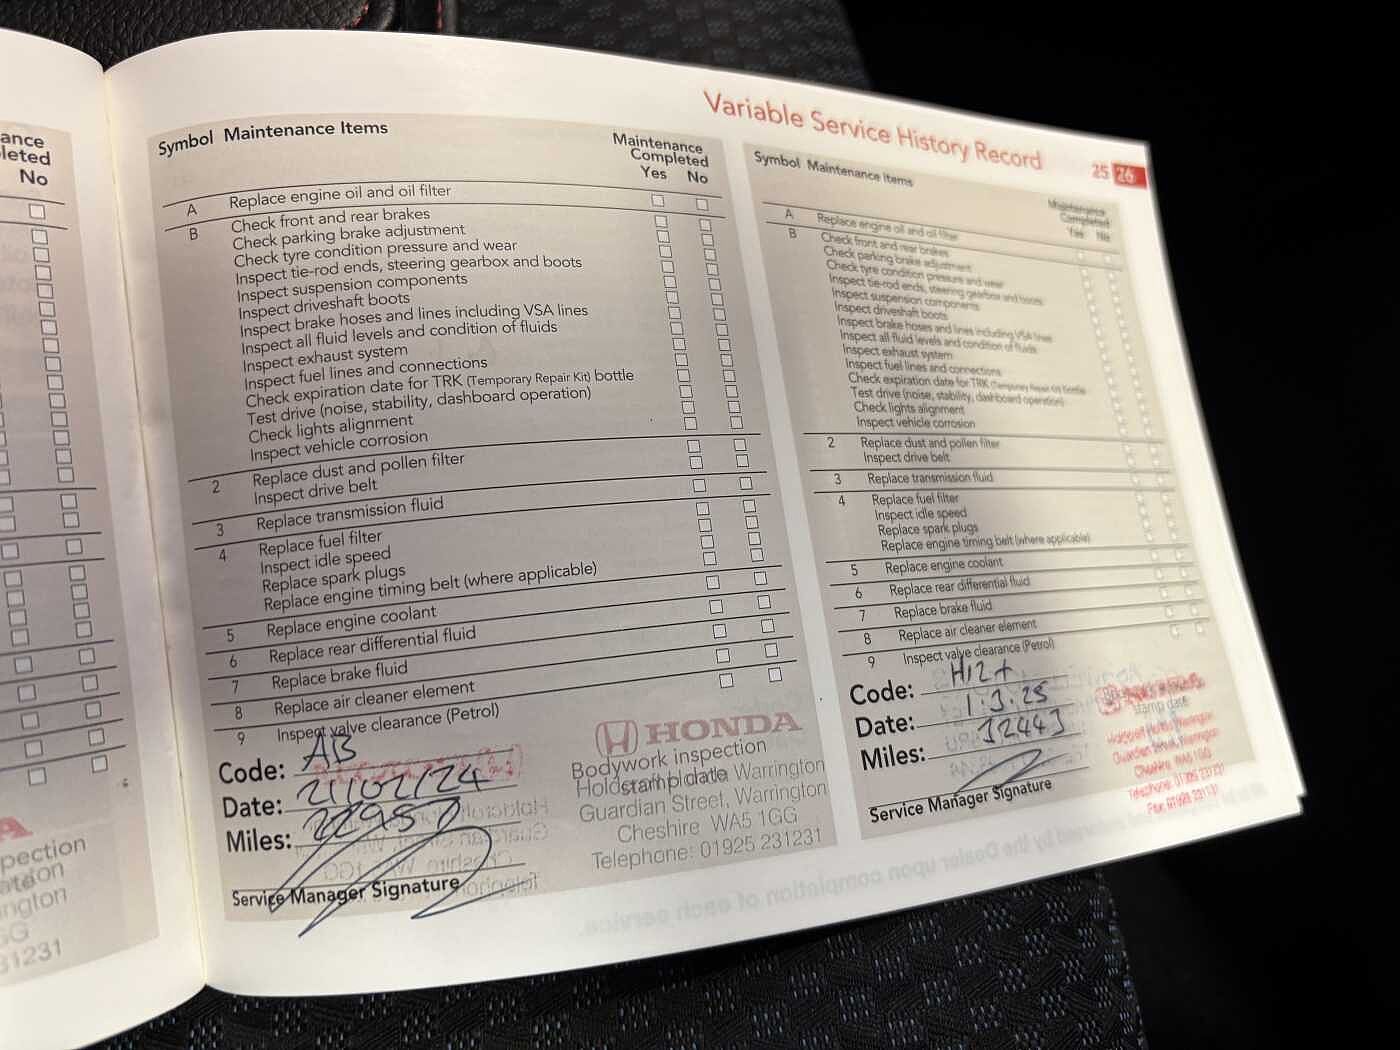 ance
leted
No
pection
ington
31231
Variable Service History Record
25 26
Symbol Maintenance Items
Maintenance
Completed
Yes No
A Replace engine oil and oil filter
B Check front and rear brakes
Check parking brake adjustment
Check tyre condition pressure and wear
Inspect tie-rod ends, steering gearbox and boots
Inspect suspension components
Inspect driveshaft boots
Inspect brake hoses and lines including VSA lines
Inspect all fluid levels and condition of fluids
Inspect exhaust system
Inspect fuel lines and connections
Check expiration date for TRK (Temporary Repair Kit) bottle
Test drive (noise, stability, dashboard operation)
Check lights alignment
Inspect vehicle corrosion
2 Replace dust and pollen filter
Inspect drive belt
3 Replace transmission fluid
4 Replace fuel filter
Inspect idle speed
Replace spark plugs
Replace engine timing belt (where applicable)
5 Replace engine coolant
6 Replace rear differential fluid
7 Replace brake fluid
8 Replace air cleaner element
9 Inspect valve clearance (Petrol)
Code: AB
Date: 21/02/24
Miles:
Service Manager Signature
HONDA
Bodywork inspection
stamp date
Holdcroft Honda Warrington
Guardian Street, Warrington
Cheshire WA5 1GG
Telephone: 01925 231231
Symbol Maintenance Items
Maintenance
Completed
Yes No
A Replace engine oil and oil filter
B Check front and rear brakes
Check parking brake adjustment
Check tyre condition pressure and wear
Inspect tie-rod ends, steering gearbox and boots
Inspect suspension components
Inspect driveshaft boots
Inspect brake hoses and lines including VSA lines
Inspect all fluid levels and condition of fluids
Inspect exhaust system
Inspect fuel lines and connections
Check expiration date for TRK (Temporary Repair Kit) bottle
Test drive (noise, stability, dashboard operation)
Check lights alignment
Inspect vehicle corrosion
2 Replace dust and pollen filter
Inspect drive belt
3 Replace transmission fluid
4 Replace fuel filter
Inspect idle speed
Replace spark plugs
Replace engine timing belt (where applicable)
5 Replace engine coolant
6 Replace rear differential fluid
7 Replace brake fluid
8 Replace air cleaner element
9 Inspect valve clearance (Petrol)
Code:
Date: 1.3.25
Miles: 32443
Service Manager Signature
stamp date
Guardian Street, Warrington
Cheshire WA5 1GG
Telephone: 01925 231231